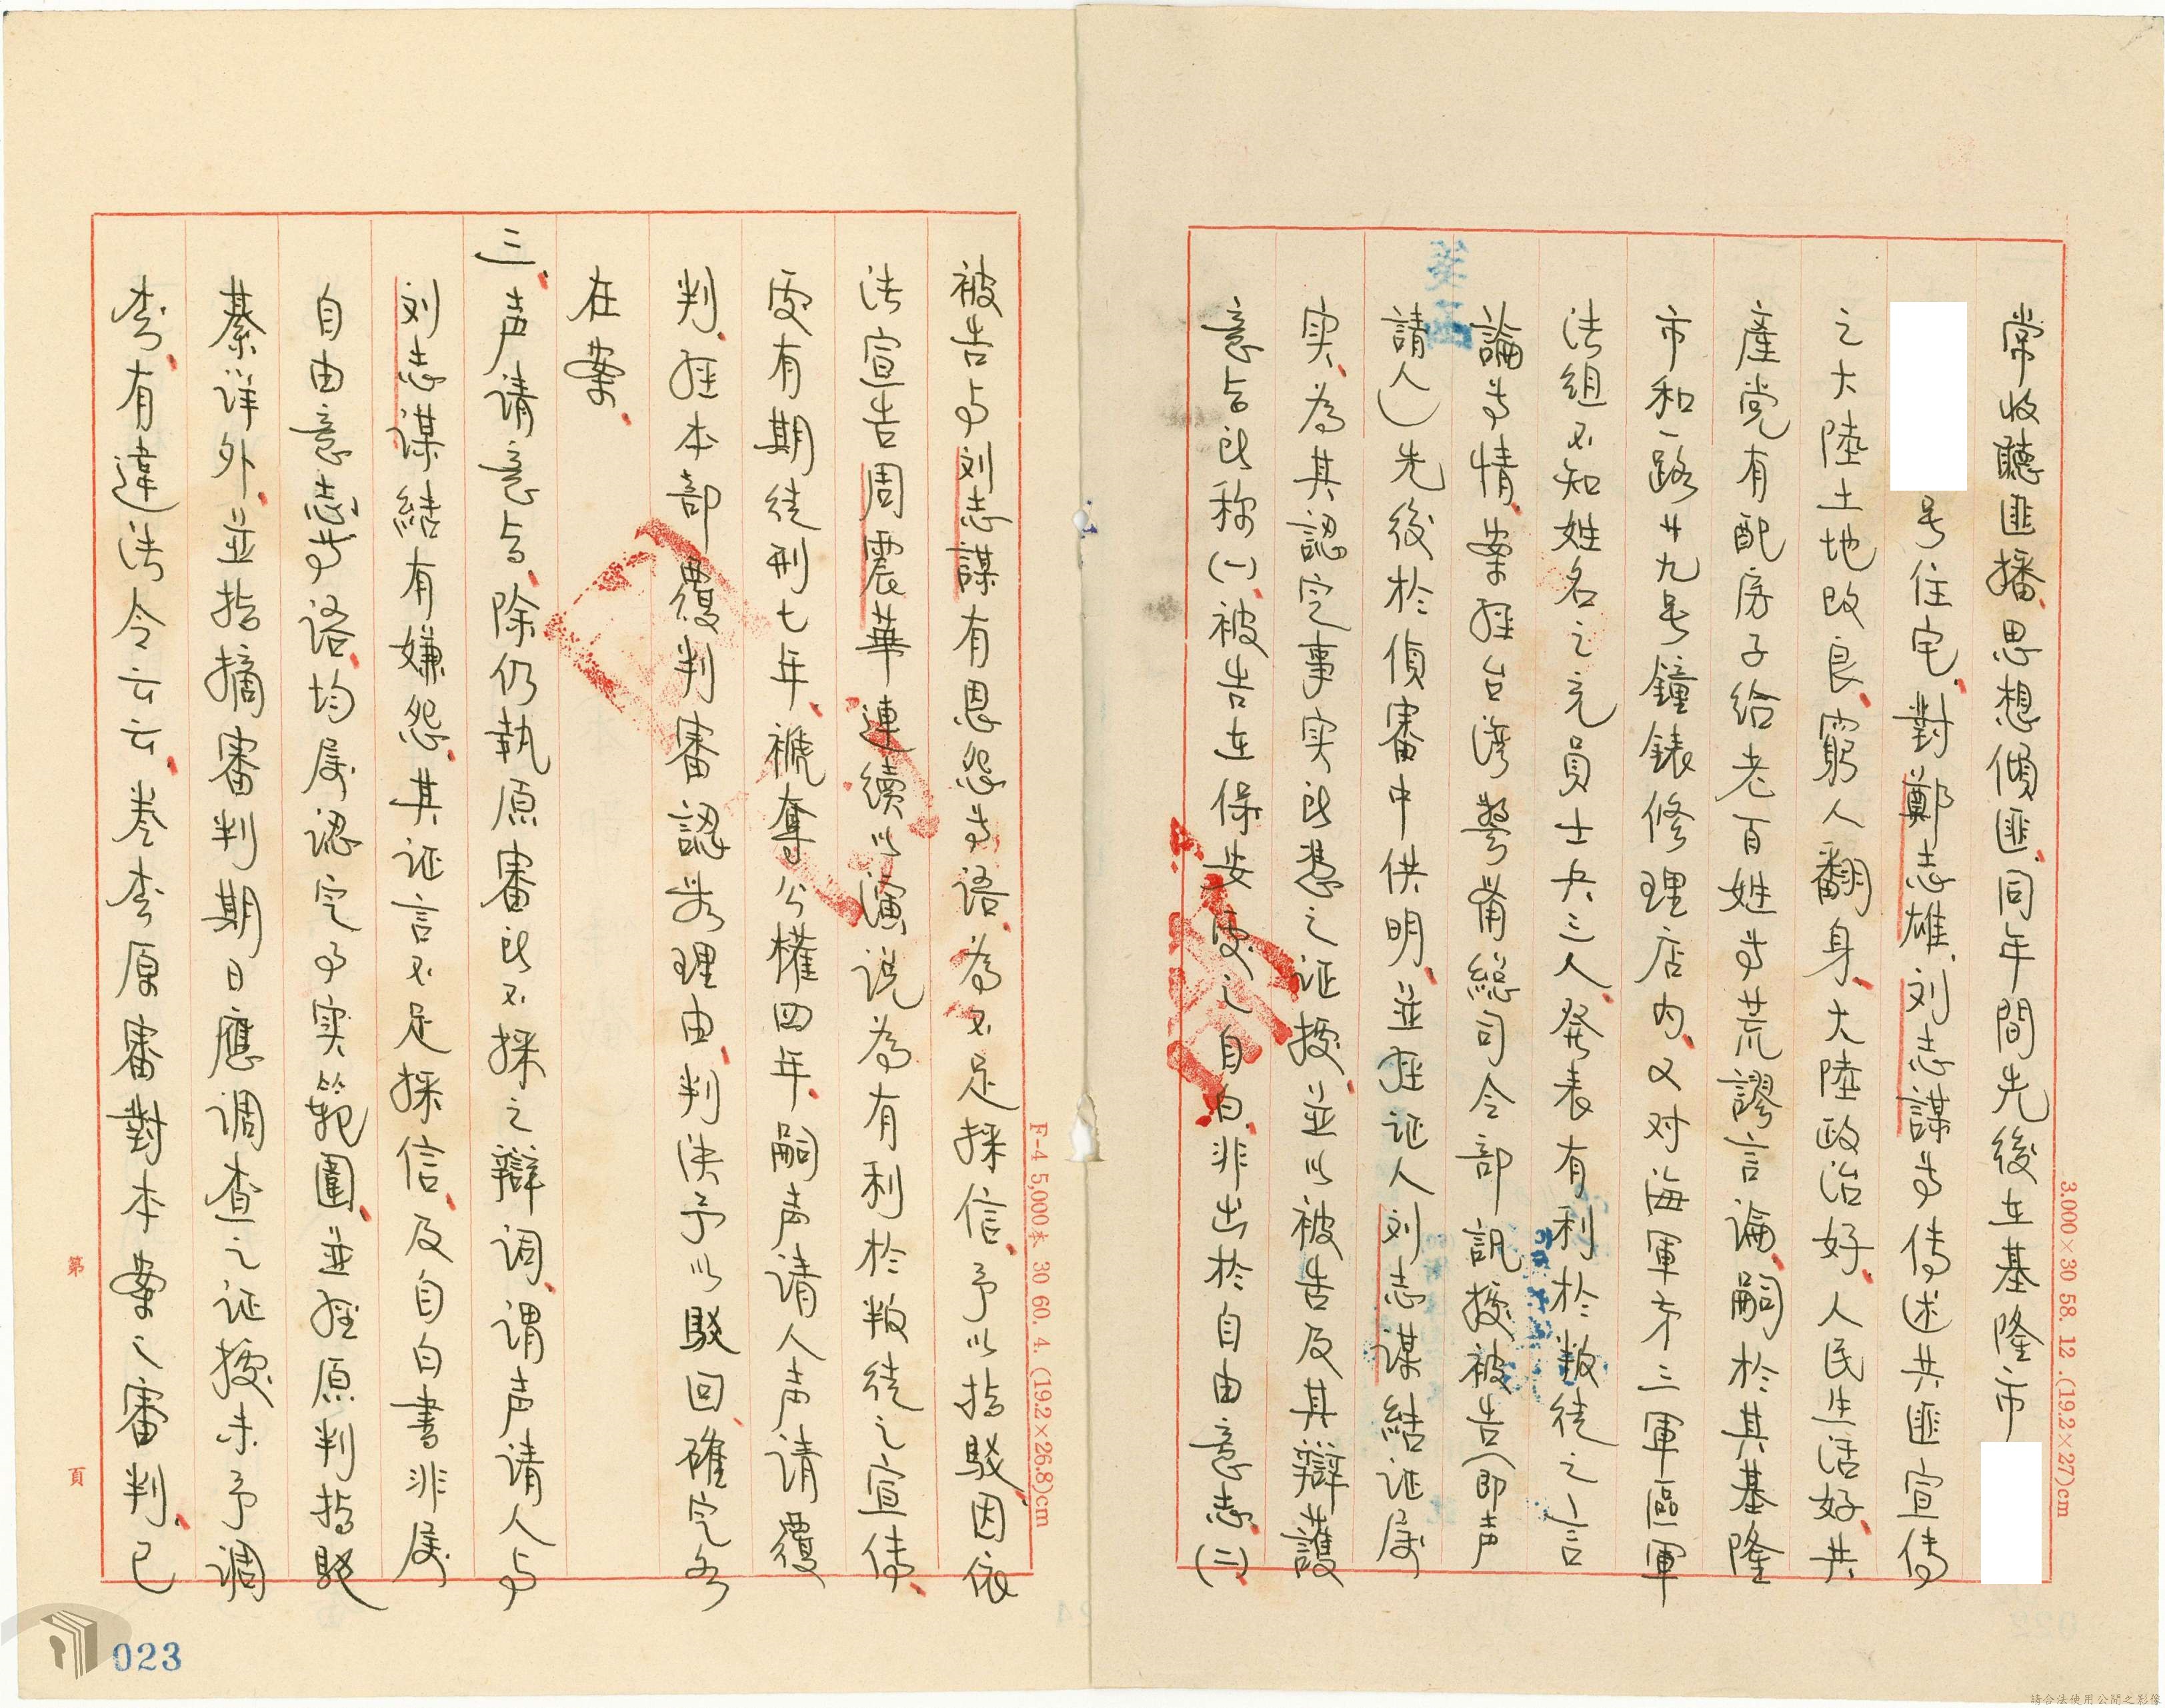 常收聽匪播、思想傾匪、同年間先後在基隆市
号住宅、對鄭志雄、刘志謀等傳述共匪宣傳
之大陸土地改良、窮人翻身、大陸政治好、人民生活好、共
產党有配房子給老百姓等荒謬言論、嗣於其基隆
市和一路廿九号鐘錶修理店內、又对海軍第三軍區軍
法組不知姓名之充員士兵三人発表有利於叛徒之言
論等情、案經台湾警備總司令部訊據被告(即声
請人)先後於偵審中供明、並經证人刘志谋結证属
实、為其認定事实所憑之证據、並以被告及其辯護
意旨所称(一)、被告在保安處之自白、非出於自由意志、(二)、
被告与刘志謀有恩怨等语、為不足採信、予以指駁、因依
法宣告周震華連續以演说為有利於叛徒之宣傳、
處有期徒刑七年、褫奪公權四年、嗣声请人声请覆
判、經本部覆判審認為理由、判决予以駁回、確定各
在案、
三、声请意旨、除仍執原審所不採之辯词、谓声请人与
刘志谋結有嫌怨、其证言不足採信、及自白書非属
自由意志等语、均属認定事实範圍、並經原判指駁
綦详外、並指摘審判期日應调查之证據未予调
查、有違法令云云、卷查原審對本案之審判、已
3.000×30 58. 12 .(19.2×27)cm
F-4 5,000本 30 60. 4. (19.2×26.8)cm
第 頁
023
請合法使用公開之影像